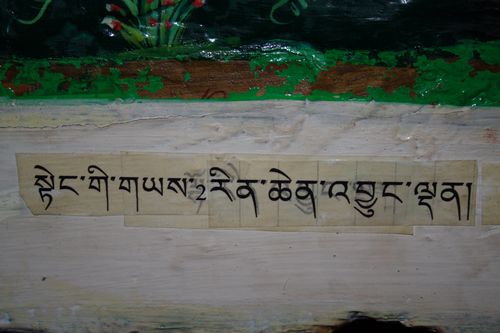 སྟེང་གི་གཡས་2རིན་ཆེན་འབྱུང་ལྡན།